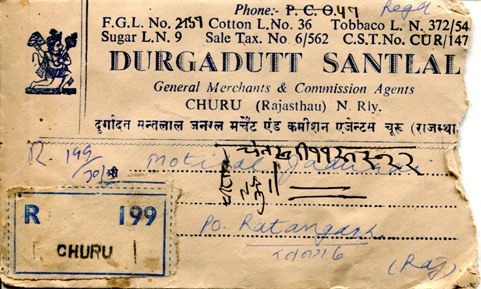 Phone:- P. C. O. 47 Regd
F.G.L. No. 2159 Cotton L.No. 36 Tobbaco L. N. 372/54
Sugar L.N. 9 Sale Tax. No 6/562 C.S.T.No. CUR/147
DURGADUTT SANTLAL
General Merchants & Commission Agents
CHURU (Rajasthau) N. Rly.
दुर्गादत सन्तलाल जनरल मर्चेंट एंड कमीशन एजेन्टस चूरू (राजस्था
R. 199
Motilal
R 199
CHURU
PO. Ratangarh
(Raj)